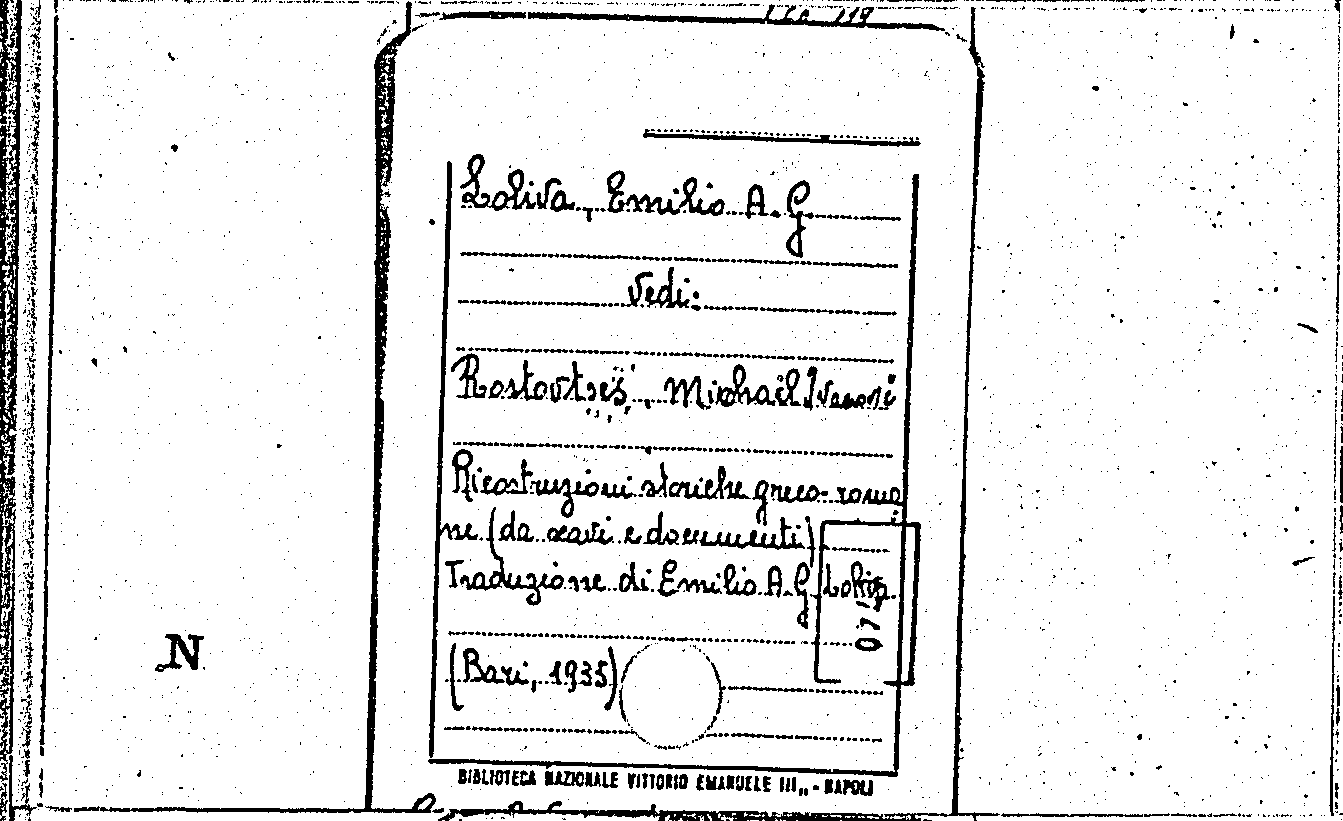 Loliva, Emilio A. G.
Vedi:
Rostovtseš, Michaël Ivanovi
Ricostruzioni storiche greco-roma
ne (da scavi e documenti)
Traduzione di Emilio A. G. Loliva
(Bari, 1935)
N
BIBLIOTECA NAZIONALE VITTORIO EMANUELE III,, - NAPOLI